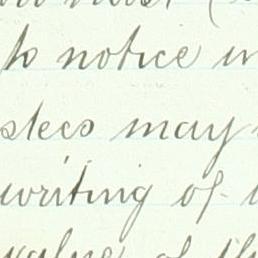 to notice in
stees may
writing of
value of the